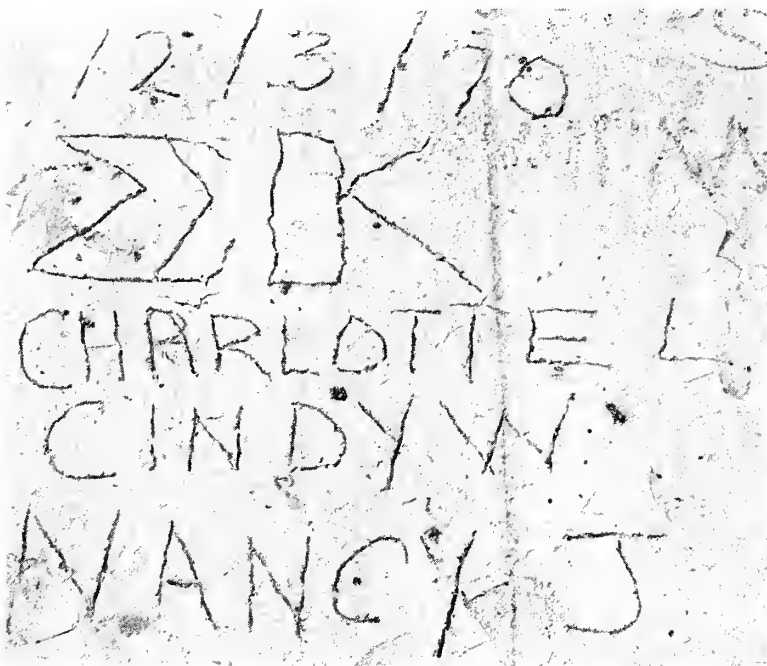 12/3/70
ΣΚ
CHARLOTTE L
CINDY W
NANCY J